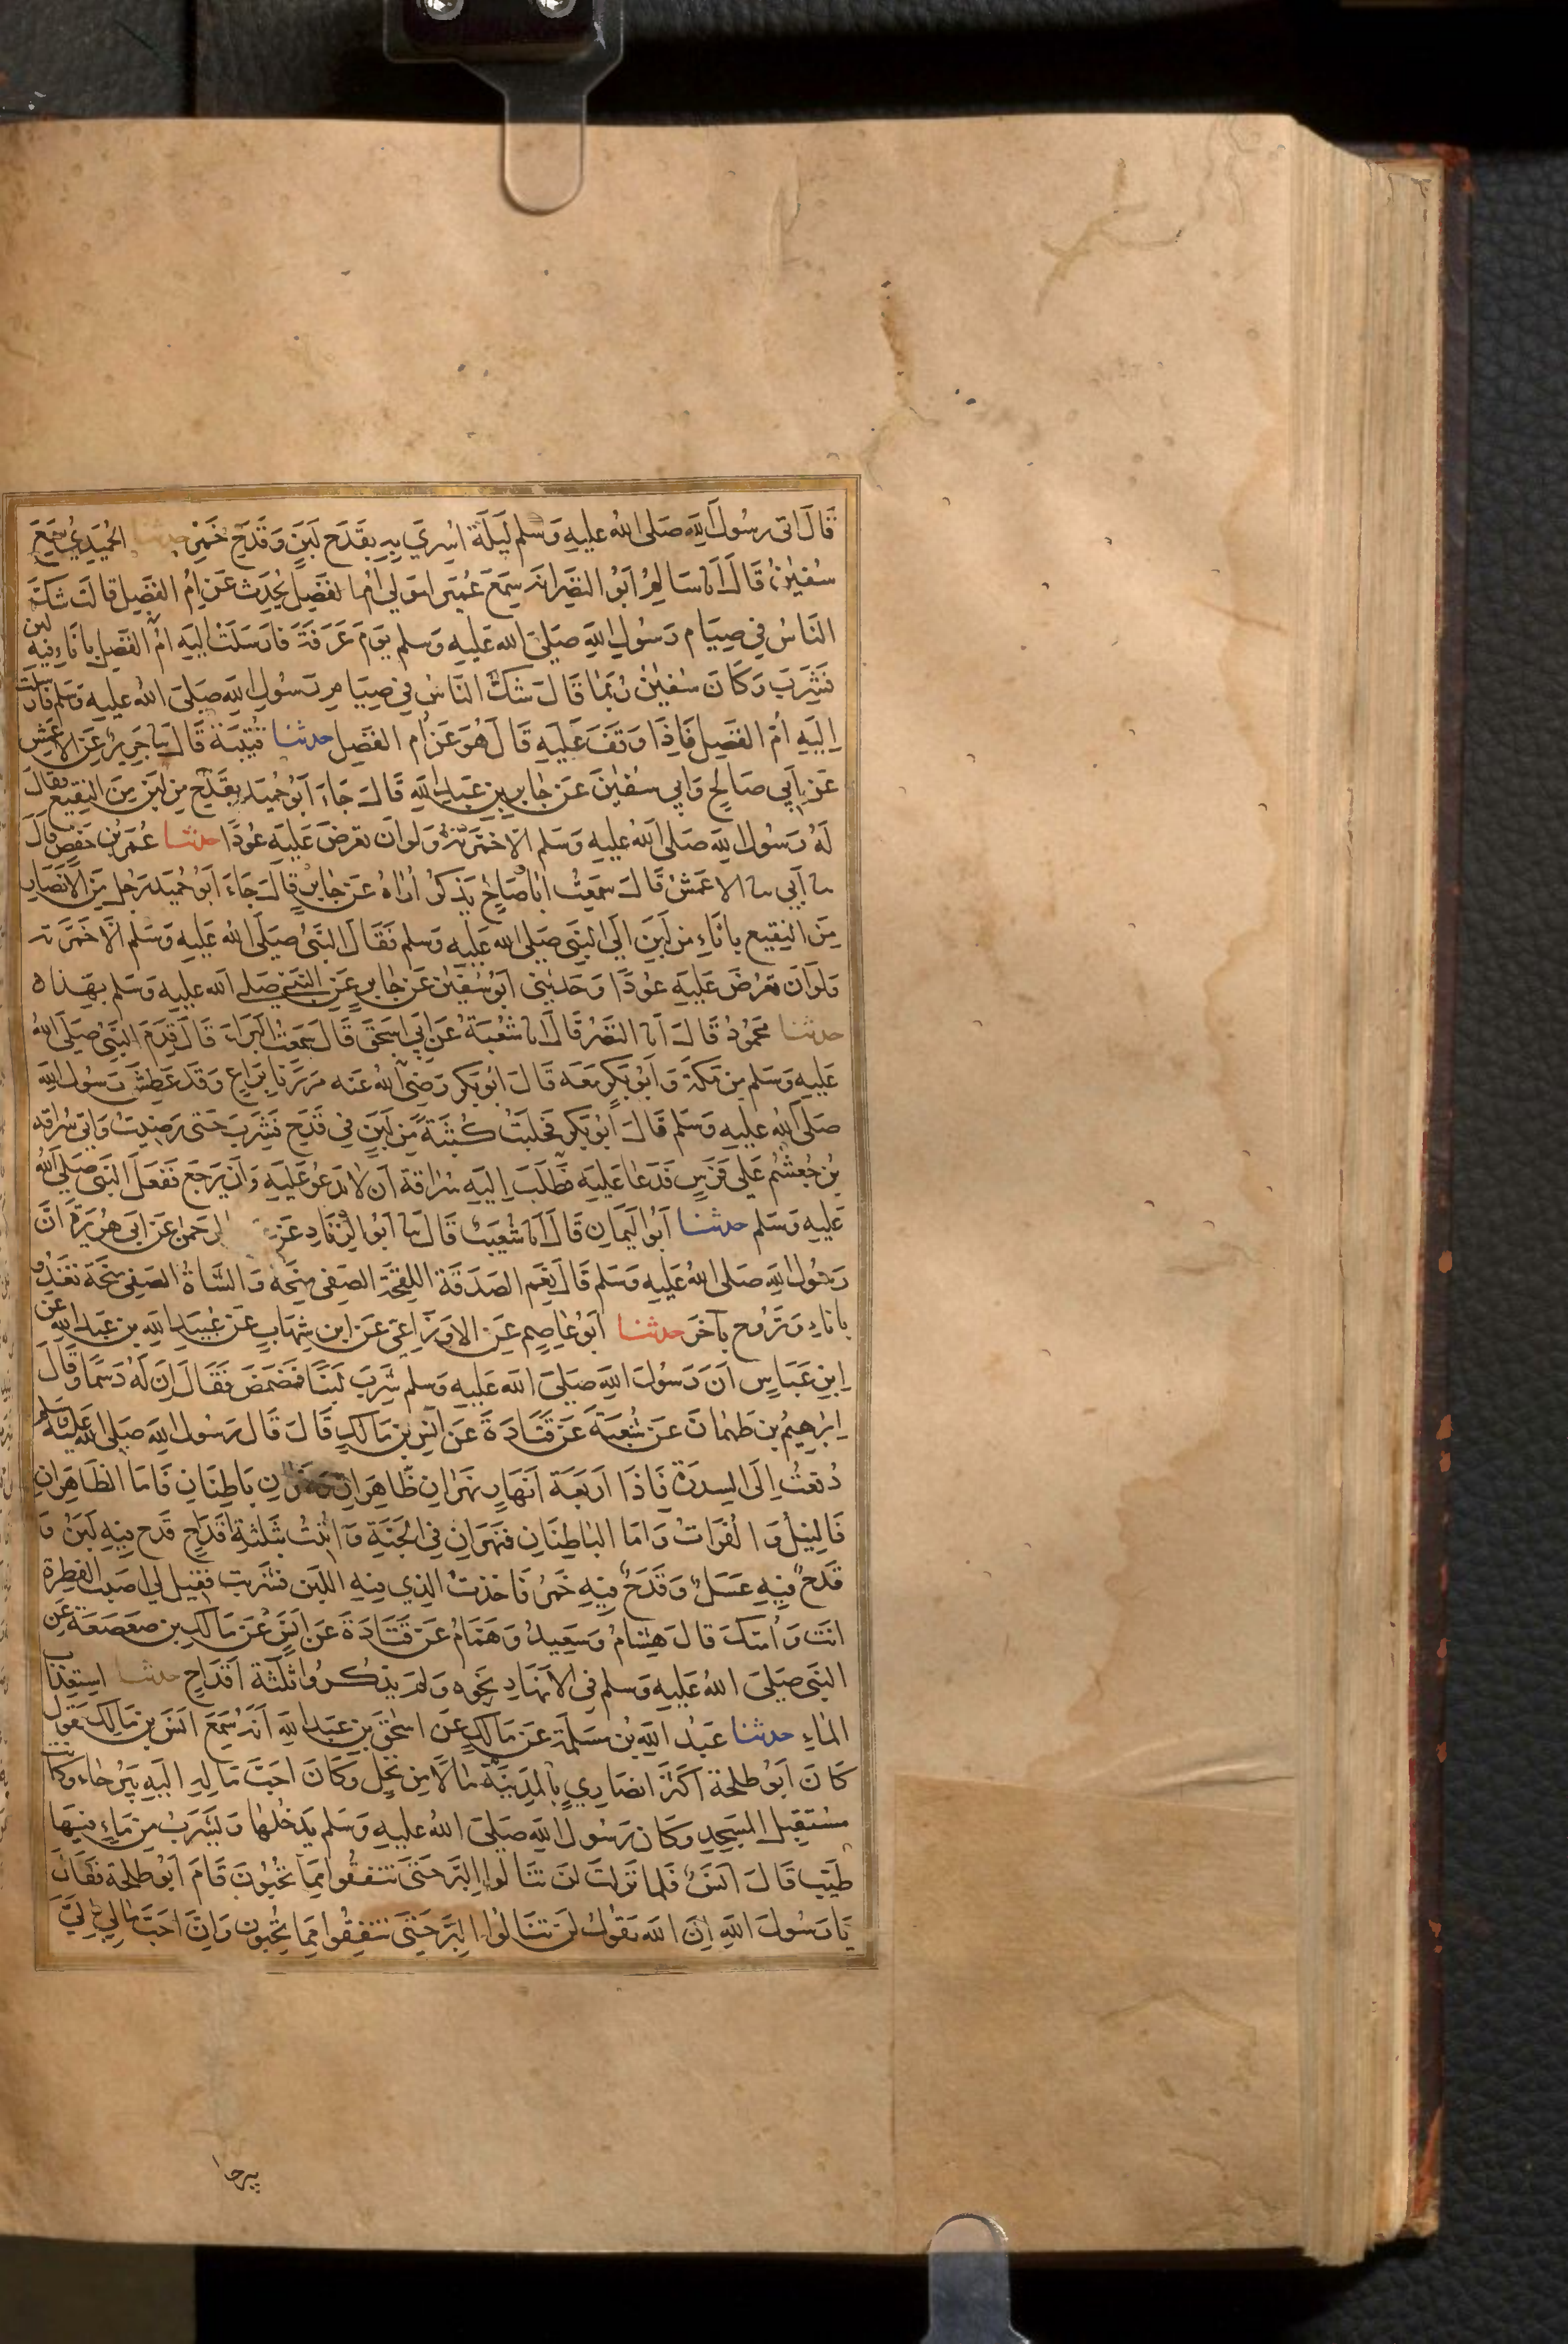 قَالَ اتى رسُول الله صَلى الله عليهِ وَسَلم لَيلَة اسْرِيَ بِهِ بِقَدَح لَبَنٍ وَقَدَحِ خَمْرٍ حدثنا الحُمَيْدِيُّ سَمِعَ
سُفينُ قَالَ انا سَالِمٌ ابُو النَضرِ انه سَمِعَ عُمَيرا مَولى ام الفَضلِ يُحَدِّث عَن ام الفَضلِ قالَت شَكَّ
النَاسُ فِي صِيَام رَسُولِ اللهِ صَلىَ الله عَليهِ وَسلم يَومَ عَرَفَةَ فارسَلَتْ اليهِ امُّ الفَضلِ باناءٍ فيهِ لبن
فَشَرِبَ وَكانَ سُفينُ رُبمَا قَالَ شَكَّ النَاسُ فِي صِيَامِ رسُولِ اللهِ صَلىَ اللهُ عليهِ وَسلم فارسَلَت
اِلَيهِ أمّ الفَضلِ فَاِذَا وَقَفَ عَلَيهِ قَالَ هُوَ عَن أم الفَضل حدثنا قُتيبَة قَالَ ثنا جَرِيرٌ عَن الاَعمَشِ
عَن اَبي صَالحٍ وَابي سفينَ عَن جَابِرِ بنِ عَبدِ اللهِ قَالَ جَاءَ ابُو حُمَيد بِقَدَحٍ مِن لَبَن مِنَ النقيعِ فقالَ
لَهُ رَسُول الله صَلى الله عليهِ وَسَلم الّا خمّرتهُ وَلوان تعرضَ عَليهِ عُودًا حدثنا عُمَرُ بن حَفصٍ قالَ
ثنا أبي ثنا الاعمَشُ قَالَ سَمِعتُ ابا صَالحٍ يَذكرُ اُراهُ عَن جَابِرٍ قالَ جَاءَ ابُو حُمَيد رَجل مِنَ الاَنصَارِ
مِنَ النقيع بانَاءٍ مِن لَبنٍ الى النَبي صَلى الله عَليهِ وَسلم فَقَالَ النَبيُ صَلىَ الله عَليهِ وَسَلم الّا خَمَّرته
وَلوان تعرُضَ عَليهِ عُودًا وَحَدثني ابُو سُفينَ عَن جَابِرٍ عَنِ النَبيِ صَلى الله عليهِ وَسَلم بهَذا ه
حدثنا مَحمُودٌ قالَ انا النَضرُ قالَ انا شُعبَةُ عَن ابي اسحَقَ قَالَ سَمعتُ البَرَاءَ قَالَ قدِمَ النَبيُّ صَلىَ اللهُ
عَليهِ وَسَلم مِن مَكةَ وَابُو بَكرٍ مَعَه قَالَ ابُو بَكرٍ رَضِى الله عَنه مَرَرنَا بِرَاعٍ وَقَد عَطِشَ رَسُولُ اللهِ
صَلى اللهُ عليهِ وَسَلم قَالَ ابُو بَكرٍ فحَلبَتُ كُثبَةً مِن لَبنٍ فِي قَدَحٍ فَشَرِبَ حَتى رَضِيتُ وَاتى سُراقه
بنُ جُعشُم عَلى فَرَسٍ فَدَعَا عَليهِ فَطَلَبَ اِليهِ سُرَاقة اَن لا يَدعُوَ عَليهِ وَان يَرجعَ فَفَعَلَ النَبي صَلىَ اللهُ
عَليهِ وَسَلم حدثنا ابُو اليَمَان قَالَ انا شعَيبٌ قالَ ثنا ابُو الزنَادِ عَن الرَحمنِ عَن ابى هُرَيرَةَ انَّ
رَسُولَ اللهِ صَلى الله عَليهِ وَسلم قَالَ نِعمَ الصَدَقَة اللقحَة الصَفى مِنحَة وَالشَاةُ الصَفى مِنحَة تغدُو
باناءٍ وَتَرُوح بآخرَ حدثنا ابُو عاصِمٍ عَن الاوزَاعى عَن ابنِ شِهَابٍ عَن عُبيدِ الله بن عَبدِ الله عن
اِبنِ عَبَاسٍ اَنَ رَسُولَ اللهِ صَلىَ اللهُ عَليهِ وَسلم شَرِبَ لبنًا فمَضمَضَ فَقَالَ اِنَ لَهُ دَسَمًا وَقَالَ
اِبرَهيمُ بن طهمَانَ عَن شُعبَةَ عَن قَتَادَةَ عَن اَنسِ بنِ مَالكٍ قَالَ قَالَ رَسُول اللهِ صَلى الله عَليهِ وسلم
رُفعتُ الَى السِدرَةِ فَاِذَا اَربَعَة اَنهَارٍ نهَرَانِ ظَاهِرَانِ وَنَهَرَانِ بَاطِنَانِ فَامَا الظَاهِرَانِ
فَالنِيلُ وَالفُرَاتُ وَامَا البَاطِنَانِ فنَهَرَانِ فِي الجَنَةِ وَاُتيتُ بثَلثَةِ اَقدَاحٍ قَدَحٌ فِيهِ لَبَنٌ وَ
قَدَحٌ فِيهِ عَسَلٌ وَقَدَحٌ فِيهِ خَمرٌ فَاخذتُ الذي فِيهِ اللَبن فَشَرِبت فقيلَ لي اَصَبتَ الفِطرة
انتَ وَامتكَ قالَ هِشَامٌ وَسَعِيدٌ وَهَمَّامٌ عَن قَتَادَةَ عَن اَنَسٍ عَن مَالكِ بن صَعصَعَةَ عَنِ
النَبَي صَلىَ اللهُ عَليهِ وَسلم فِى الانهَارِ نحَوه وَلم يَذكرُوا ثَلثَة اقدَاحٍ حدثنا استِعذَاب
المَاءِ حدثنا عَبدُ اللهِ بن مَسلَمَةَ عَن مَالكٍ عَن اسحَق بنِ عَبدِ اللهِ اَنه سَمِعَ انَسَ بن مَالك يَقول
كَانَ ابُو طلحَة اكثَرَ انصَارِيٍ بالمَدِينَةِ مَالًا مِن نَخلٍ وَكَانَ احَبَّ مَالهِ الَيهِ بَيرُحَاء وَكانت
مُستَقبِلَ المَسجِدِ وَكَانَ رَسُول الله صَلىَ اللهُ عليهِ وَسَلم يَدخُلهَا وَيَشرَبُ مِن مَاءٍ فِيهَا
طَيبٍ قَالَ انَسٌ فَلما نَزلَت لَن تنَالوا البِرَّ حَتىَّ تنفِقُوا مِمَا تُحبُونَ قَامَ ابُو طلحَة فَقَالَ
يَا رَسُولَ اللهِ اِنَّ اللهَ يَقُولُ لَن تَنَالُوا البِرَّ حَتىَ تنفِقُوا مِمَا تُحِبُونَ وَاِنَّ احَبَّ مَالِي اِلَيَّ
بيرحا